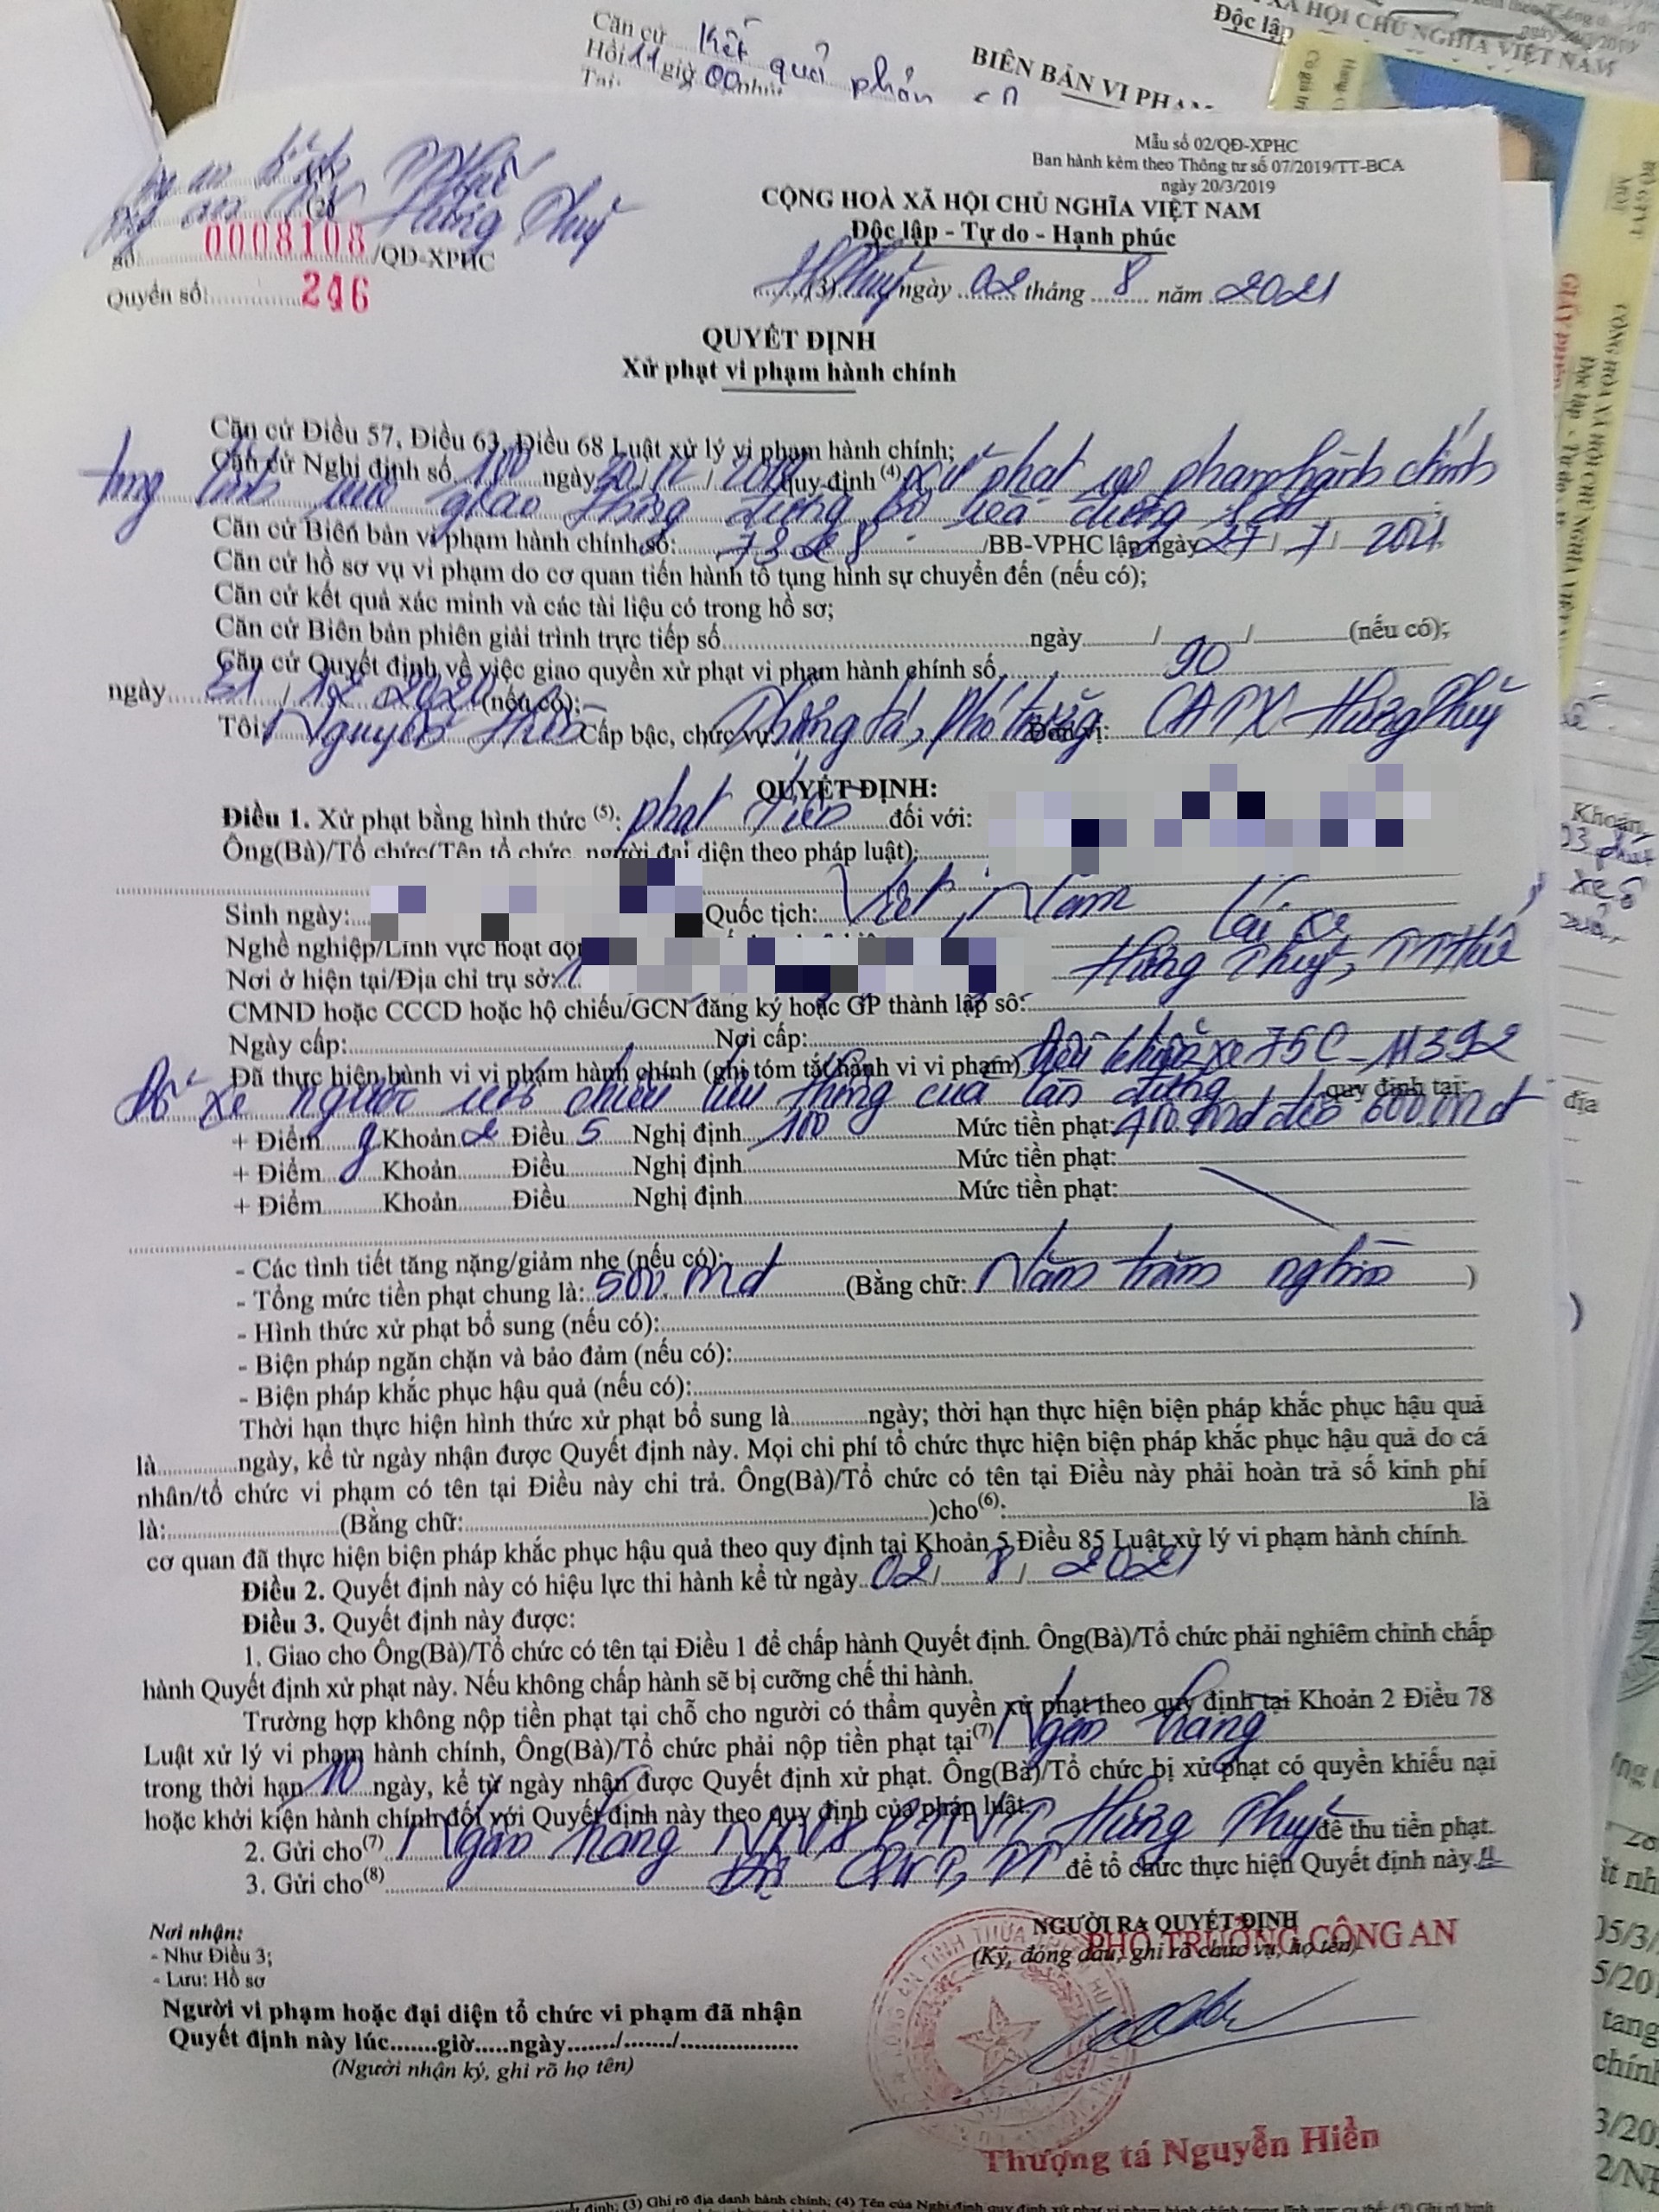 Căn cứ Kết quả phản
Hồi 11 giờ 00 phút
Tại:
BIÊN BẢN VI PHẠM
XÃ HỘI CHỦ NGHĨA VIỆT NAM
Độc lập
Mẫu số 02/QĐ-XPHC
Ban hành kèm theo Thông tư số 07/2019/TT-BCA
ngày 20/3/2019
CỘNG HOÀ XÃ HỘI CHỦ NGHĨA VIỆT NAM
Độc lập - Tự do - Hạnh phúc
Hương Thuỷ
Số: 0008108 /QĐ-XPHC
Quyển số: 246
(3) H.Thuỷ ngày 02 tháng 8 năm 2021
QUYẾT ĐỊNH
Xử phạt vi phạm hành chính
Căn cứ Điều 57, Điều 63, Điều 68 Luật xử lý vi phạm hành chính;
Căn cứ Nghị định số 100 ngày 30/12/2019 quy định (4) xử phạt vi phạm hành chính
trong lĩnh vực giao thông đường bộ và đường sắt
Căn cứ Biên bản vi phạm hành chính số: 7328 /BB-VPHC lập ngày 27/7/2021
Căn cứ hồ sơ vụ vi phạm do cơ quan tiến hành tố tụng hình sự chuyển đến (nếu có);
Căn cứ kết quả xác minh và các tài liệu có trong hồ sơ;
Căn cứ Biên bản phiên giải trình trực tiếp số ngày / / (nếu có);
Căn cứ Quyết định về việc giao quyền xử phạt vi phạm hành chính số 90
ngày 31/12/2020 (nếu có);
Tôi: Nguyễn Hiền Cấp bậc, chức vụ: Thượng tá, Phó trưởng Đơn vị: CATX Hương Thuỷ
QUYẾT ĐỊNH:
Điều 1. Xử phạt bằng hình thức (5): phạt tiền đối với:
Ông(Bà)/Tổ chức(Tên tổ chức, người đại diện theo pháp luật):
Sinh ngày: Quốc tịch: Việt Nam
Nghề nghiệp/Lĩnh vực hoạt độ Lái xe
Nơi ở hiện tại/Địa chỉ trụ sở: Hương Thuỷ, TT Huế
CMND hoặc CCCD hoặc hộ chiếu/GCN đăng ký hoặc GP thành lập số:
Ngày cấp: Nơi cấp:
Đã thực hiện hành vi vi phạm hành chính (ghi tóm tắt hành vi vi phạm) Điều khiển xe 75C-11392
Đỗ xe ngược với chiều lưu thông của làn đường quy định tại:
+ Điểm g Khoản 2 Điều 5 Nghị định 100 Mức tiền phạt: 400.mđ đến 600.mđ
+ Điểm Khoản Điều Nghị định Mức tiền phạt:
+ Điểm Khoản Điều Nghị định Mức tiền phạt:
- Các tình tiết tăng nặng/giảm nhẹ (nếu có):
- Tổng mức tiền phạt chung là: 500.mđ (Bằng chữ: Năm trăm nghìn )
- Hình thức xử phạt bổ sung (nếu có):
- Biện pháp ngăn chặn và bảo đảm (nếu có):
- Biện pháp khắc phục hậu quả (nếu có):
Thời hạn thực hiện hình thức xử phạt bổ sung là ngày; thời hạn thực hiện biện pháp khắc phục hậu quả
là ngày, kể từ ngày nhận được Quyết định này. Mọi chi phí tổ chức thực hiện biện pháp khắc phục hậu quả do cá
nhân/tổ chức vi phạm có tên tại Điều này chi trả. Ông(Bà)/Tổ chức có tên tại Điều này phải hoàn trả số kinh phí
là: (Bằng chữ: )cho(6): là
cơ quan đã thực hiện biện pháp khắc phục hậu quả theo quy định tại Khoản 5 Điều 85 Luật xử lý vi phạm hành chính.
Điều 2. Quyết định này có hiệu lực thi hành kể từ ngày 02/8/2021
Điều 3. Quyết định này được:
1. Giao cho Ông(Bà)/Tổ chức có tên tại Điều 1 để chấp hành Quyết định. Ông(Bà)/Tổ chức phải nghiêm chỉnh chấp
hành Quyết định xử phạt này. Nếu không chấp hành sẽ bị cưỡng chế thi hành.
Trường hợp không nộp tiền phạt tại chỗ cho người có thẩm quyền xử phạt theo quy định tại Khoản 2 Điều 78
Luật xử lý vi phạm hành chính, Ông(Bà)/Tổ chức phải nộp tiền phạt tại(7) Ngân hàng
trong thời hạn 10 ngày, kể từ ngày nhận được Quyết định xử phạt. Ông(Bà)/Tổ chức bị xử phạt có quyền khiếu nại
hoặc khởi kiện hành chính đối với Quyết định này theo quy định của pháp luật.
2. Gửi cho(7) Ngân hàng NN&PTNT Hương Thuỷ để thu tiền phạt.
3. Gửi cho(8) để tổ chức thực hiện Quyết định này.
Nơi nhận:
- Như Điều 3;
- Lưu: Hồ sơ
Người vi phạm hoặc đại diện tổ chức vi phạm đã nhận
Quyết định này lúc.......giờ.....ngày......./......./..................
(Người nhận ký, ghi rõ họ tên)
NGƯỜI RA QUYẾT ĐỊNH
(Ký, đóng dấu, ghi rõ chức vụ, họ tên)
PHÓ TRƯỞNG CÔNG AN
Thượng tá Nguyễn Hiền